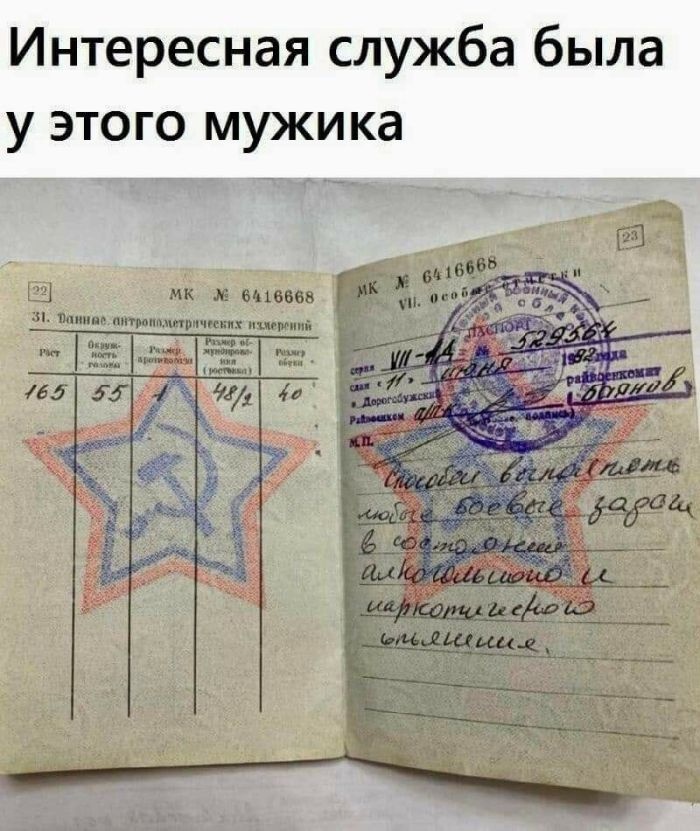 Интересная служба была
у этого мужика
22
МК № 6416668
31. Данные антропометрических измерений
Рост
Окруж-
ность
головы
Размер
противогаза
Размер об-
мундирова-
ния
(ростовка)
Размер
обуви
165 55 1 48/2 40
23
МК № 6416668
VII. Особые отметки
ПАСПОРТ
серия VII-ЛД № 529564
11 июня 1992 года
Дорогобужский райвоенкомат
Райвоенком
(Баянов)
М.П.
Способен выполнять
любые боевые задачи
в состоянии
алкогольного и
наркотического
опьянения.